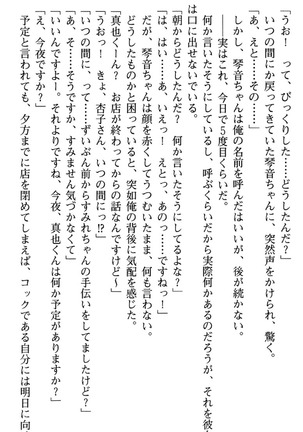 「うお！　って、びっくりした……どうしたんだ？」
いつの間にか戻ってきていた琴音ちゃんに、突然声をかけられ、驚く。
「あ、えと……その……」
しかし、琴音ちゃんは俺の名前を呼んだはいいが、後が続かない。
――実はこれ、今日で５度目くらいだ。
何か言いたそうにしているし、呼ぶくらいだから実際何かあるのだろうが、それを彼女
は口に出せないでいる。
「朝からどうしたんだ？　何か言いたそうにしてるよな？」
「は、はい……あ、いえっ！　えとっ、あのっ……ですねっ！」
だが、琴音ちゃんは顔を赤くしてうつむいたまま、何も言わない。
どうしたものかと困っていると、突如俺の背後に気配を感じた。
「真也くーん？　お店が終わってからの話なんですけど～」
「うおっ！　きょ、杏子さん、いつの間にっ！？」
「いつの間に、って……ずいぶん前からすみれちゃんの手伝いをしてましたけど？」
「あ、そ……そうですか、すみません気づかなくて」
「いいんですよー。それよりですね、今夜、真也くんは何か予定がありますか？」
「え、今夜ですか？」
予定と言われても、夕方までに店を閉めてしまえば、コックである自分には明日に向